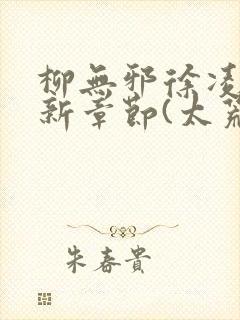 柳無邪徐凌
新章節(太荒
朱春貴